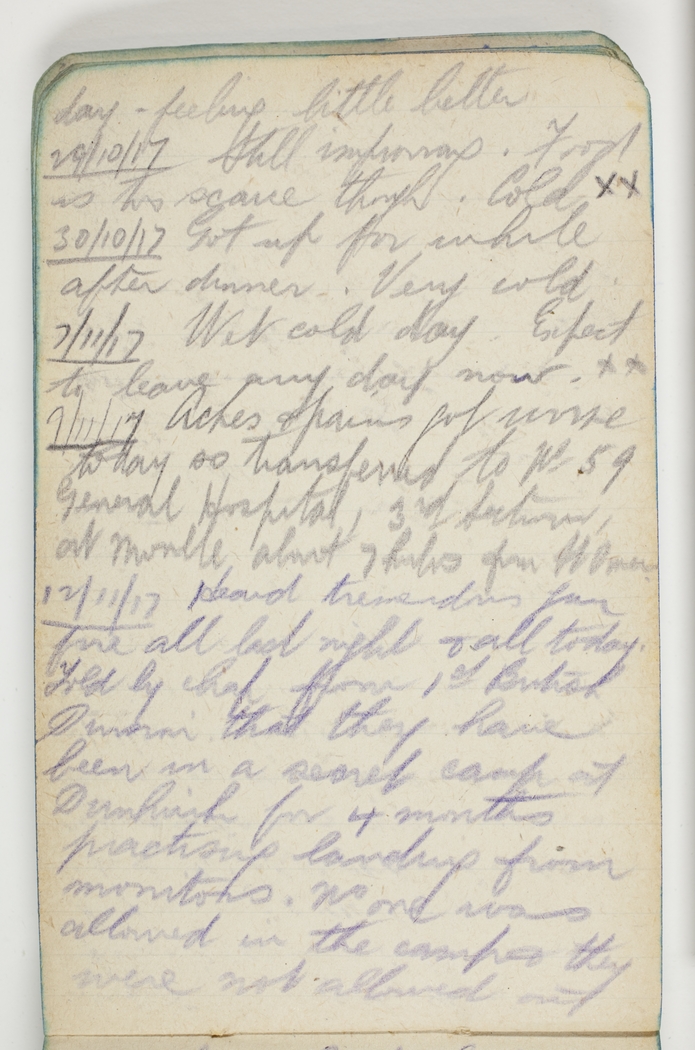 day - feeling little better
29/10/17 Still improving. Food
is too scarce though. Cold XX
30/10/17 Got up for while
after dinner. Very cold.
7/11/17 Wet cold day. Expect
to leave any day now. XX
9/11/17 Aches & pains got worse
today so transferred to No 59
General Hospital, 3rd Section,
at about 7 from St Omer
12/11/17 Heard tremendous gun
fire all last night & all today.
Told by chap from 1st British
Division that they have
been in a secret camp at
Dunkirk for 4 months
practising landing from
monitors. No one was
allowed in the camp & they
were not allowed out